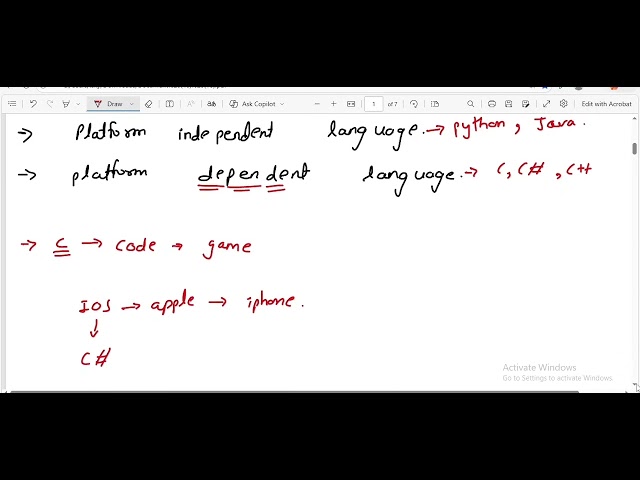 Draw
Ask Copilot
1 of 7
Edit with Acrobat
→ Platform independent language → python, Java.
→ platform dependent language → C, C#, C++
→ C → code → game
IOS → apple → iphone.
↓
C#
Activate Windows
Go to Settings to activate Windows